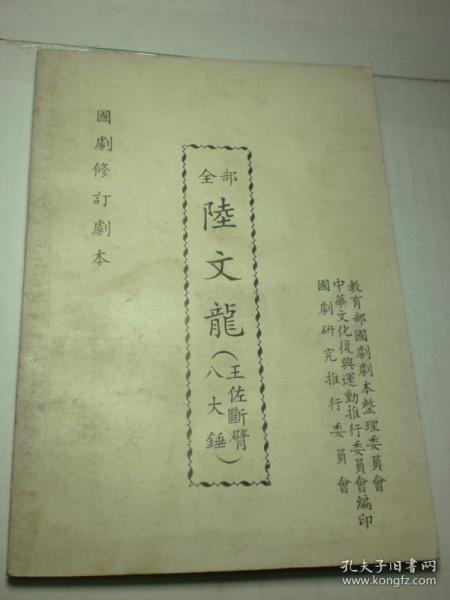 國劇修訂劇本
全部
陸文龍（王佐斷臂
八大錘）
教育部國劇劇本整理委員會
中華文化復興運動推行委員會編印
國劇研究推行委員會
孔夫子旧书网
www.kongfz.com